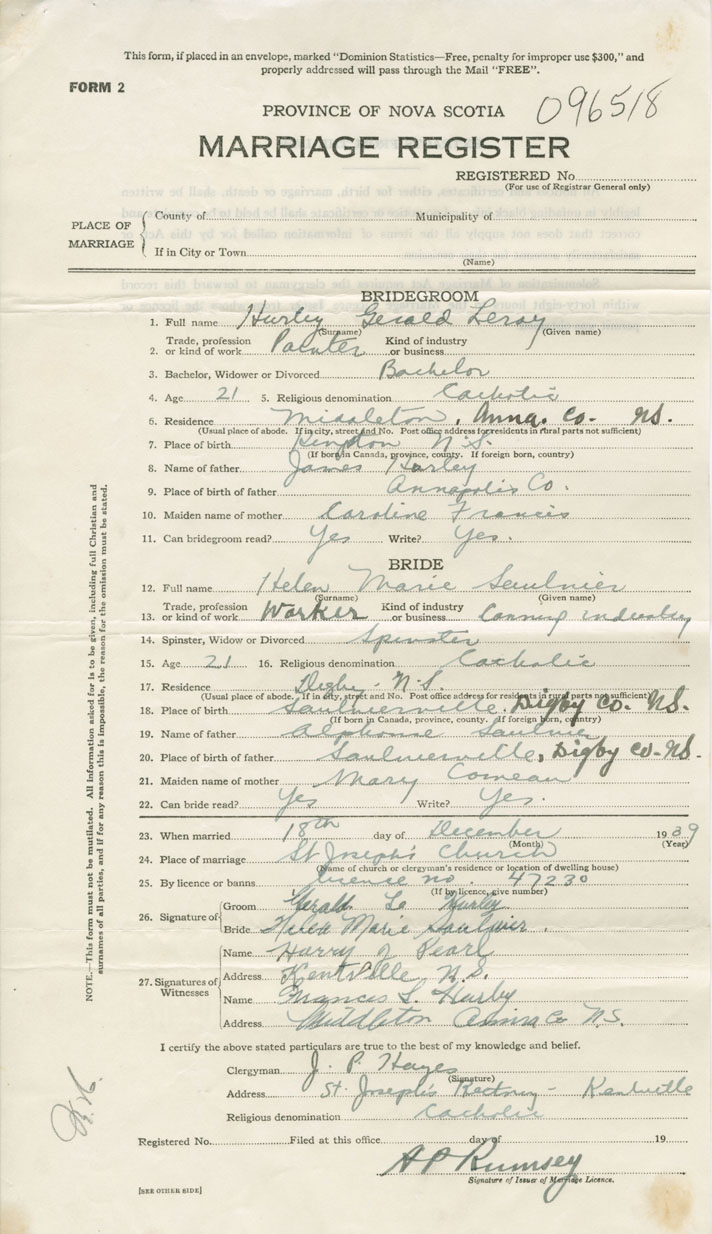 This form, if placed in an envelope, marked "Dominion Statistics—Free, penalty for improper use $300," and
properly addressed will pass through the Mail "FREE".
FORM 2
PROVINCE OF NOVA SCOTIA 096518
MARRIAGE REGISTER
REGISTERED No.
(For use of Registrar General only)
PLACE OF MARRIAGE
County of Municipality of
If in City or Town
(Name)
BRIDEGROOM
1. Full name Hurley Gerald Leroy
(Surname) (Given name)
2. Trade, profession or kind of work Painter Kind of industry or business
3. Bachelor, Widower or Divorced Bachelor
4. Age 21 5. Religious denomination Catholic
6. Residence Middleton, Anna. Co. NS.
(Usual place of abode. If in city, street and No. Post office address for residents in rural parts not sufficient)
7. Place of birth N.S.
(If born in Canada, province, county. If foreign born, country)
8. Name of father James Hurley
9. Place of birth of father Annapolis Co.
10. Maiden name of mother Caroline Francis
11. Can bridegroom read? Yes Write? Yes.
BRIDE
12. Full name Helen Marie Saulnier
(Surname) (Given name)
13. Trade, profession or kind of work Worker Kind of industry or business Canning industry
14. Spinster, Widow or Divorced Spinster
15. Age 21 16. Religious denomination Catholic
17. Residence Digby N.S.
(Usual place of abode. If in city, street and No. Post office address for residents in rural parts not sufficient)
18. Place of birth Saulnierville, Digby Co. NS.
(If born in Canada, province, county. If foreign born, country)
19. Name of father Alphonse Saulnier
20. Place of birth of father Saulnierville, Digby Co. NS.
21. Maiden name of mother Mary Comeau
22. Can bride read? Yes Write? Yes.
23. When married 18th day of December 1939
(Month) (Year)
24. Place of marriage St Joseph's Church
(Name of church or clergyman's residence or location of dwelling house)
25. By licence or banns licence no. 47230
(If by licence, give number)
26. Signature of
Groom Gerald Le Hurley
Bride Marie Saulnier.
27. Signatures of Witnesses
Name Harry J Pearl
Address Kentville N.S.
Name Francis L. Hurley
Address Middleton Anna Co N.S.
I certify the above stated particulars are true to the best of my knowledge and belief.
Clergyman J. P. Hayes
(Signature)
Address St. Joseph's Rectory - Kentville
Religious denomination Catholic
Registered No. Filed at this office day of 19
A P Rumsey
Signature of Issuer of Marriage Licence.
[SEE OTHER SIDE]
NOTE.—This form must not be mutilated. All information asked for is to be given, including full Christian and
surnames of all parties, and if for any reason this is impossible, the reason for the omission must be stated.